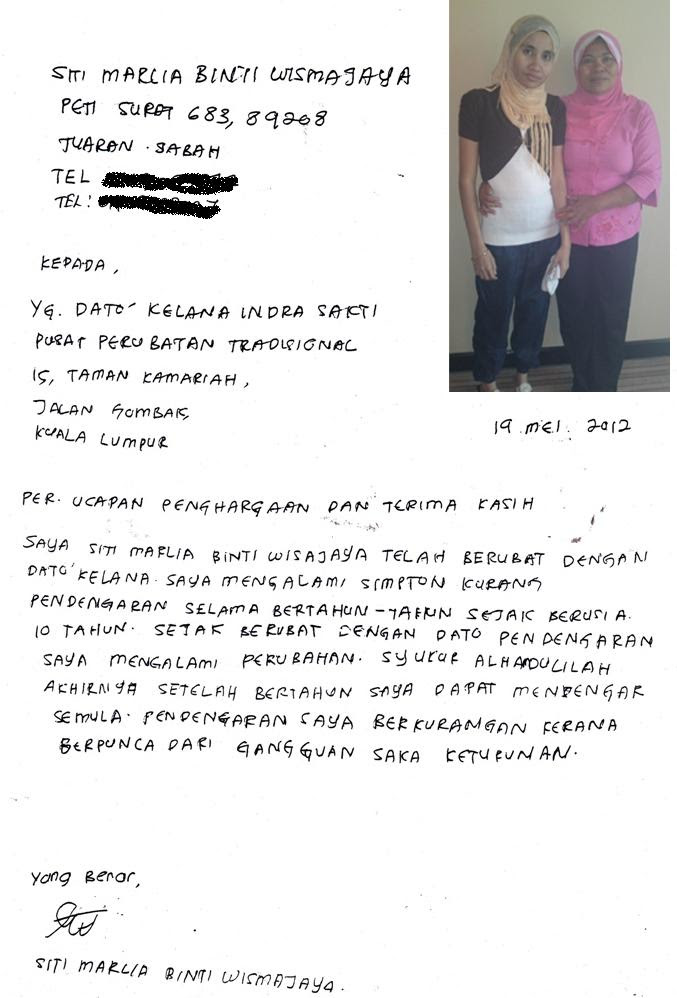 SITI MARLIA BINTI WISMAJAYA
PETI SURAT 683, 89208
TUARAN . SABAH
TEL
TEL :
KEPADA,
YG. DATO' KELANA INDRA SAKTI
PUSAT PERUBATAN TRADISIONAL
15, TAMAN KAMARIAH,
JALAN GOMBAK,
KUALA LUMPUR
19. MEI. 2012
PER. UCAPAN PENGHARGAAN DAN TERIMA KASIH
SAYA SITI MARLIA BINTI WISAJAYA TELAH BERUBAT DENGAN
DATO' KELANA. SAYA MENGALAMI SIMPTON KURANG
PENDENGARAN SELAMA BERTAHUN-TAHUN SEJAK BERUSIA.
10 TAHUN. SEJAK BERUBAT DENGAN DATO PENDENGARAN
SAYA MENGALAMI PERUBAHAN. SYUKUR ALHADULILAH
AKHIRNYA SETELAH BERTAHUN SAYA DAPAT MENDENGAR
SEMULA. PENDENGARAN SAYA BERKURANGAN KERANA
BERPUNCA DARI GANGGUAN SAKA KETURUNAN.
Yang Benar,
SITI MARLIA BINTI WISMAJAYA.